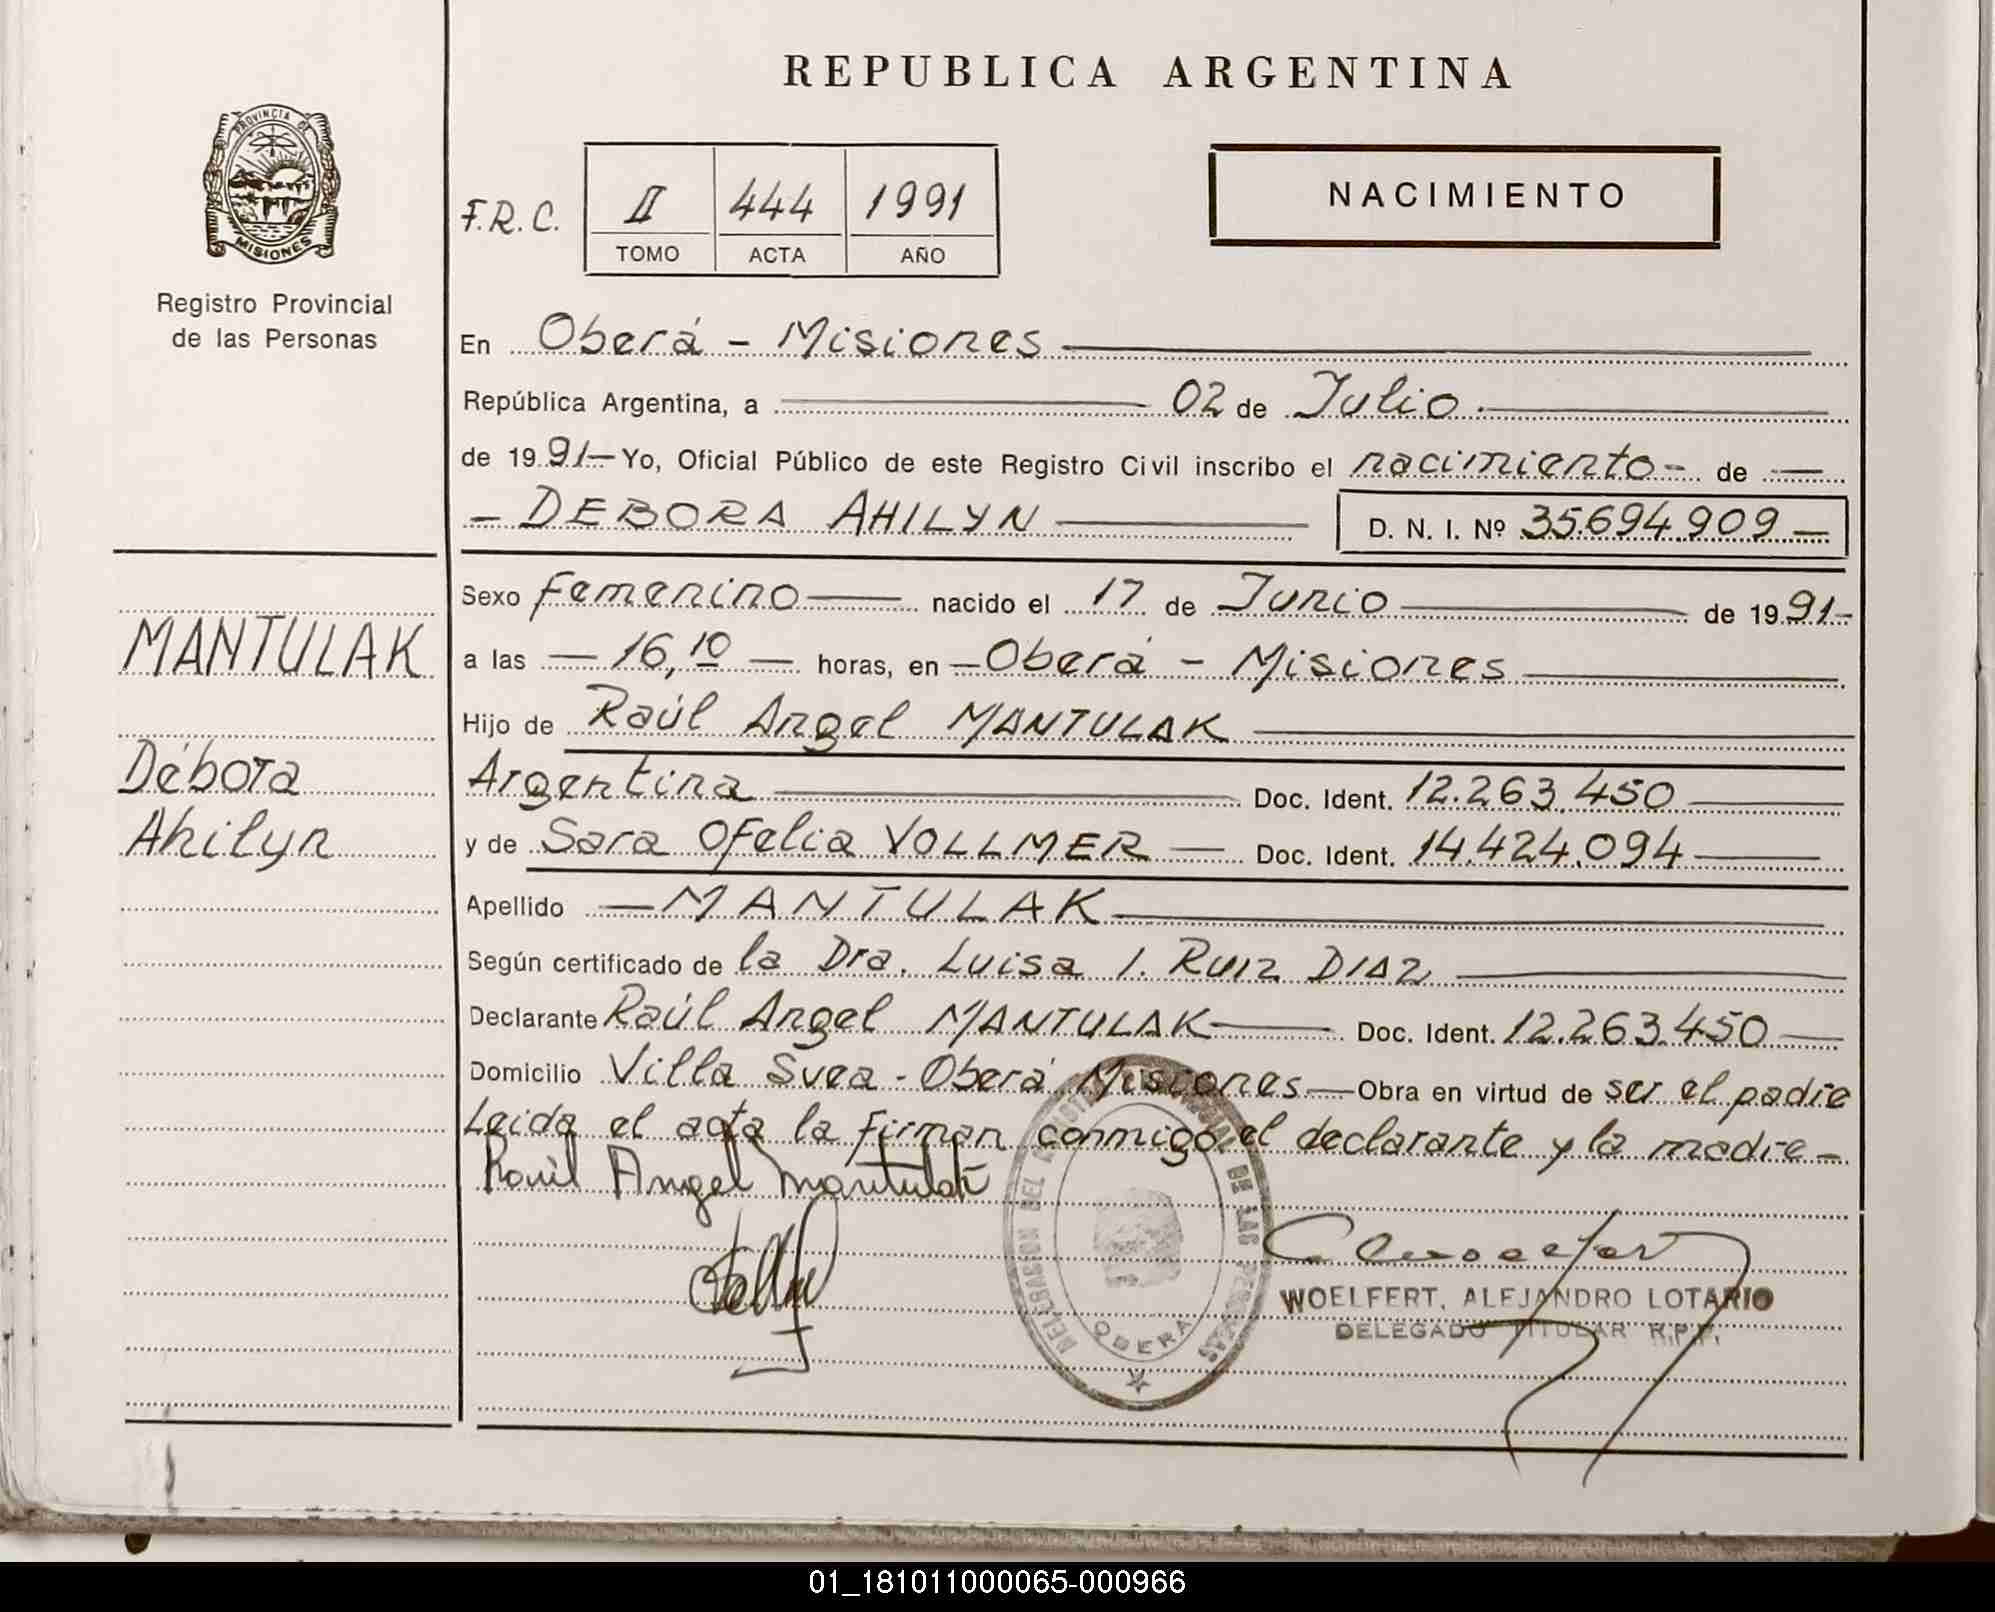 REPUBLICA ARGENTINA
PROVINCIA DE
MISIONES
Registro Provincial
de las Personas
F.R.C.
II 444 1991
TOMO ACTA AÑO
NACIMIENTO
En Oberá - Misiones
República Argentina, a 02 de Julio
de 1991 Yo, Oficial Público de este Registro Civil inscribo el nacimiento de
DEBORA AHILYN D. N. I. Nº 35.694.909
MANTULAK
Débora
Ahilyn
Sexo femenino nacido el 17 de Junio de 1991
a las 16,10 horas, en Oberá - Misiones
Hijo de Raúl Angel MANTULAK
Argentina Doc. Ident. 12.263.450
y de Sara Ofelia VOLLMER Doc. Ident. 14.424.094
Apellido MANTULAK
Según certificado de la Dra. Luisa I. RUIZ DIAZ
Declarante Raúl Angel MANTULAK Doc. Ident. 12.263.450
Domicilio Villa Svea - Oberá Misiones Obra en virtud de ser el padre
Leida el acta la firman conmigo el declarante y la madre
Raúl Angel Mantulak
OBERA
WOELFERT, ALEJANDRO LOTARIO
DELEGADO TITULAR R.P.P.
01_181011000065-000966